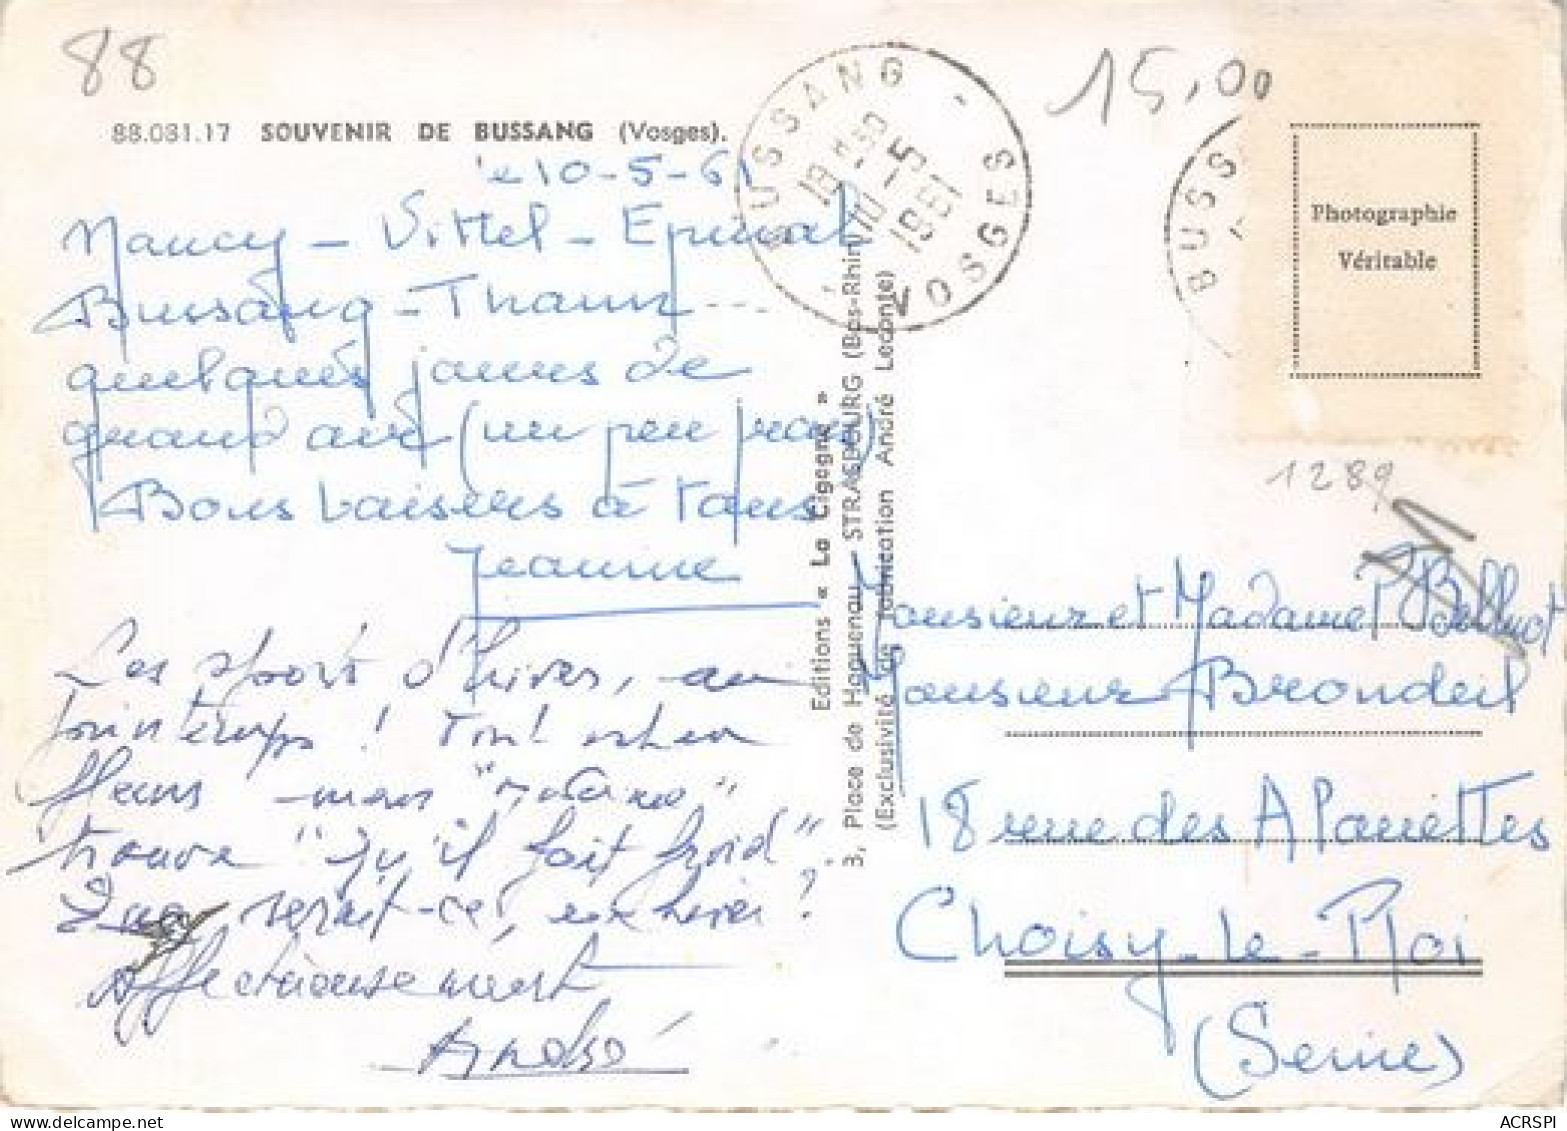 88
88.081.17 SOUVENIR DE BUSSANG (Vosges).
le 10-5-61
Nancy - Vittel - Epinal
Bussang - Thann ...
quelques jours de
grand air (un peu frais)
Bons baisers à tous
Jeannine
Les sports d'hiver, au
printemps ! Tout est en
fleurs mais
trouve "qu'il fait froid"
Que serait-ce, en hiver ?
Affectueusement
André
BUSSANG - VOSGES
18H30
10-5
1961
Editions « La Cigogne »
3, Place de Haguenau - STRASBOURG (Bas-Rhin)
(Exclusivité de fabrication André Leconte)
15,00
BUSS
Photographie
Véritable
1289
Monsieur et Madame P Bellnot
Monsieur Brondeil
18 rue des Alouettes
Choisy-Le-Roi
(Seine)
ACRSPI